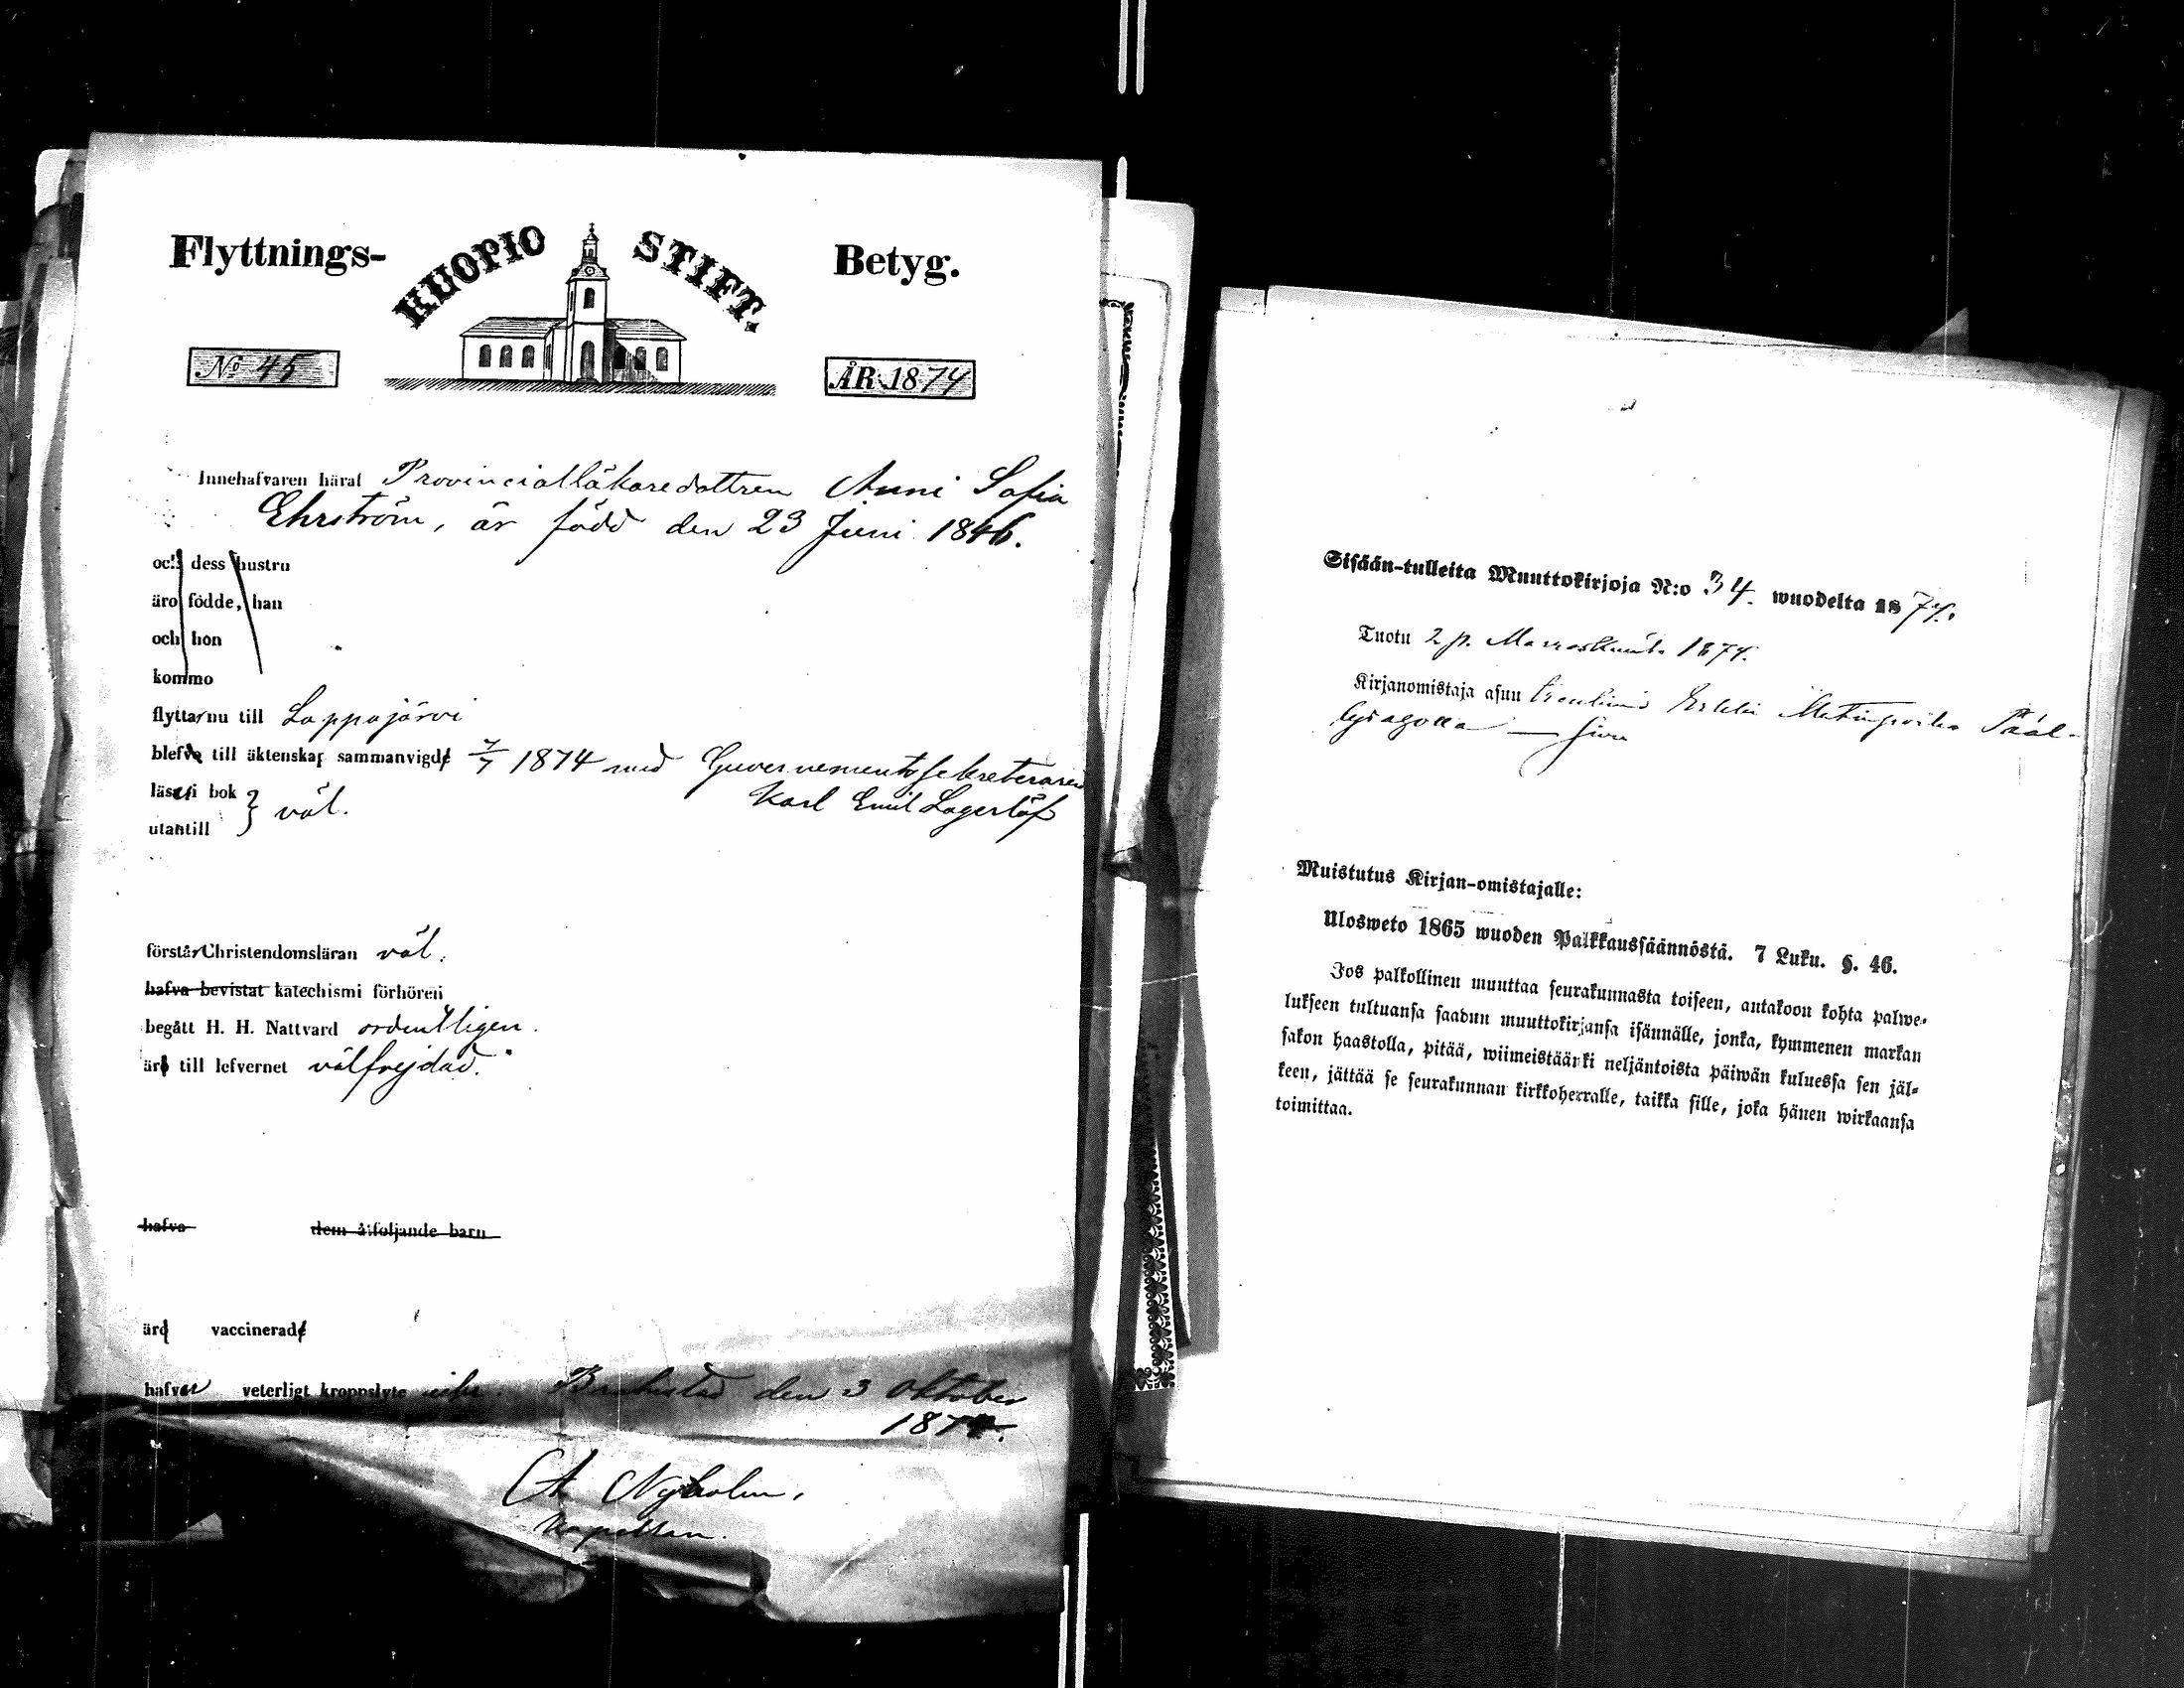 Flyttnings- KUOPIO STIFT. Betyg.
No 45 ÅR 1874
Innehafvaren häraf Provincialläkaredottren Anni Sofia
Ehrström, är född den 23 Juni 1846.
och dess hustru
äro födde, han
och hon
kommo
flyttar nu till Lappajärvi
blefve till äktenskap sammanvigde 7/7 1874 med Guvernementssekreteraren
Karl Emil Lagerlöf
läser i bok } väl.
utantill
förstår Christendomsläran väl.
hafva bevistat katechismi förhören
begått H. H. Nattvard ordentligen.
äro till lefvernet välfrejdad.
hafva dem åtföljande barn
äro vaccinerade
hafver veterligt kroppslyte Brahestad den 3 Oktober
1874.
A Nyholm,
Kapellan.
Sisään-tulleita Muuttokirjoja N:o 34. wuodelta 1874.
Tuotu 2 p. Marraskuuta 1874.
Kirjanomistaja asuu Erkki
Muistutus Kirjan-omistajalle:
Ulosweto 1865 wuoden Palkkaussäännöstä. 7 Luku. §. 46.
Jos palkollinen muuttaa seurakunnasta toiseen, antakoon kohta palwe-
lukseen tultuansa saadun muuttokirjansa isännälle, jonka, kymmenen markan
sakon haastolla, pitää, wiimeistäänki neljäntoista päiwän kuluessa sen jäl-
keen, jättää se seurakunnan kirkkoherralle, taikka sille, joka hänen wirkaansa
toimittaa.